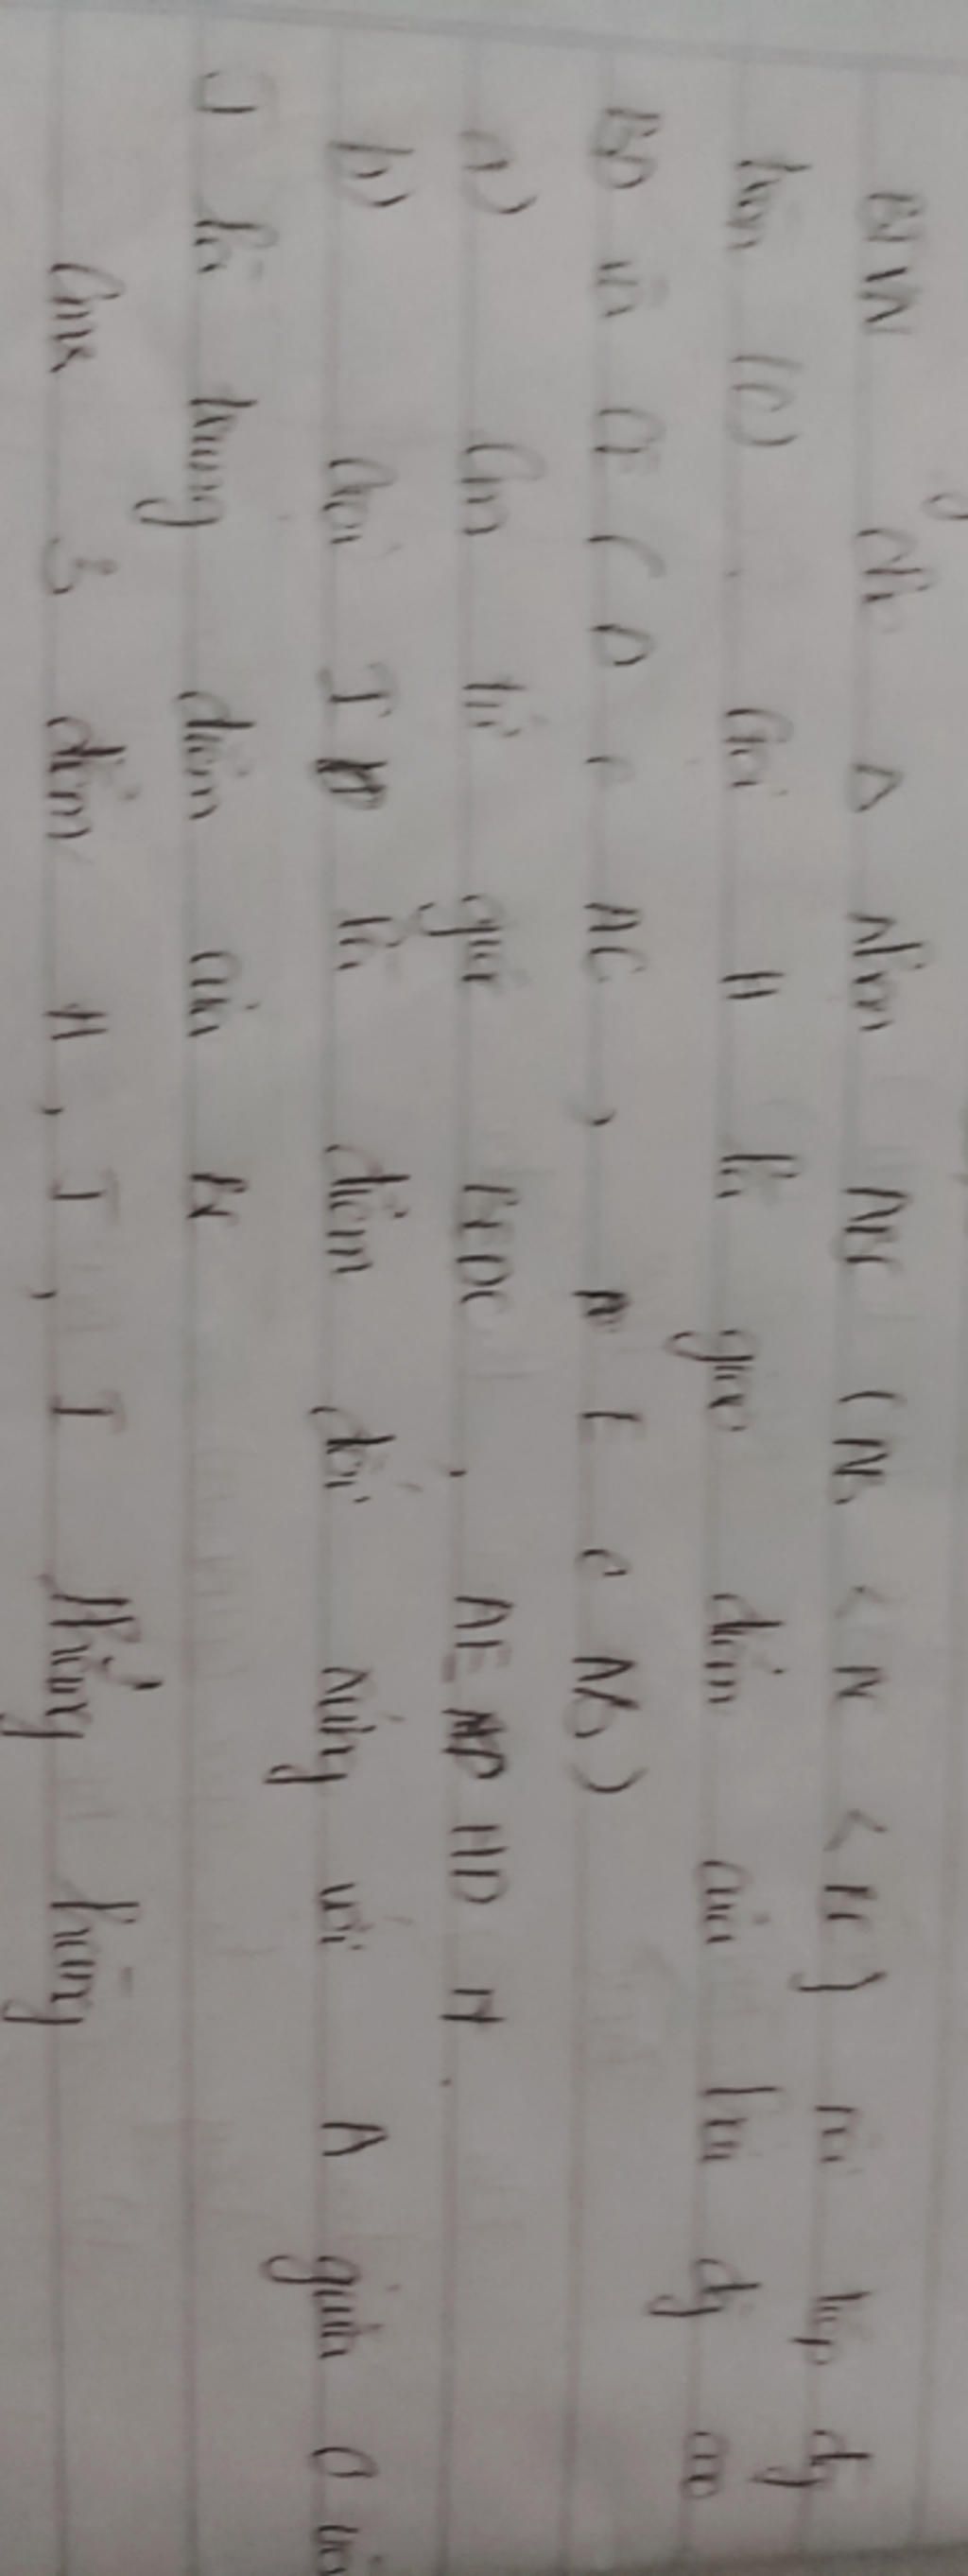 BVN Cho Δ nhọn ABC (AB < AC < BC) nội tiếp đg
tròn (O). Gọi H là giao điểm của hai đg cao
BD và CE (D ∈ AC, E ∈ AB)
a) Cm tứ giác BEDC, AEHD nt.
b) Gọi I là điểm đối xứng với A qua O và
J là trung điểm của BC
Cmr 3 điểm H, J, I thẳng hàng